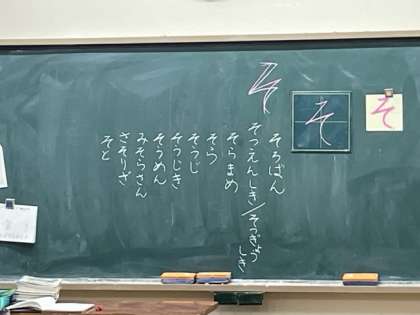 そ
そ
そ
そろばん
そつえんしき/そつぎょうしき
そらまめ
そら
そうじ
そうじき
そうめん
みそらさん
さそりざ
そと